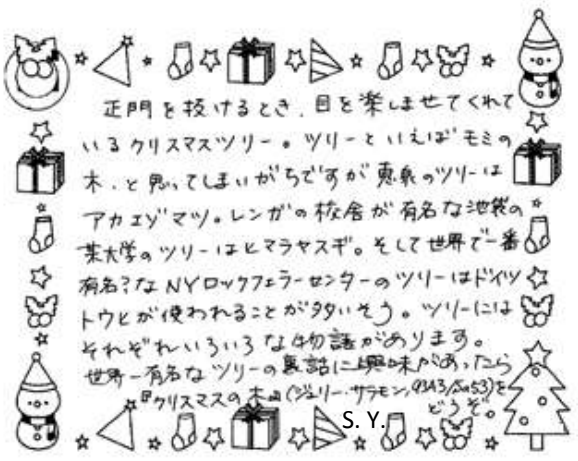 正門を抜けるとき、目を楽しませてくれて
いるクリスマスツリー。ツリーといえばモミの
木、と思ってしまいがちですが恵泉のツリーは
アカエゾマツ。レンガの校舎が有名な池袋の
某大学のツリーはヒマラヤスギ。そして世界で一番
有名？なNYロックフェラーセンターのツリーはドイツ
トウヒが使われることが多いそう。ツリーには
それぞれいろいろな物語があります。
世界一有名なツリーの裏話に興味があったら
『クリスマスの木』(ジュリー・サラモン, 93A3/Sa53)を
どうぞ。
S. Y.